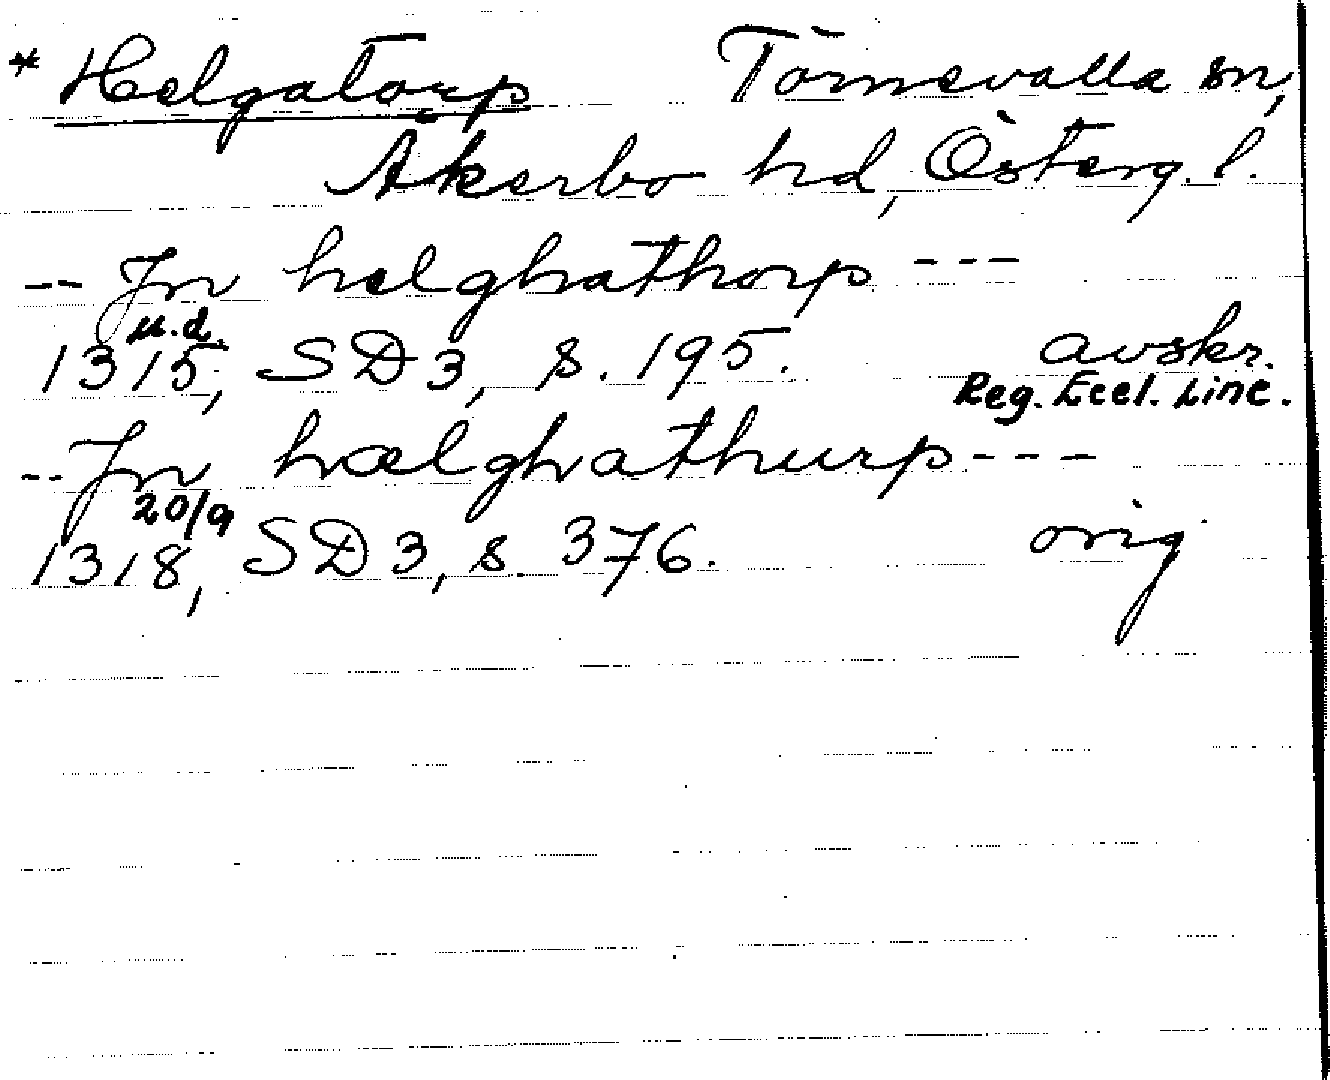 * Helgatorp Törnevalla sn,
Åkerbo hd, Österg. l.
-- Jn helghathorp ---
u.d.
1315, SD 3, s. 195. avskr.
Reg. Eccl. Linc.
-- Jn hælghathurp ---
20/9
1318, SD 3, s. 376. orig